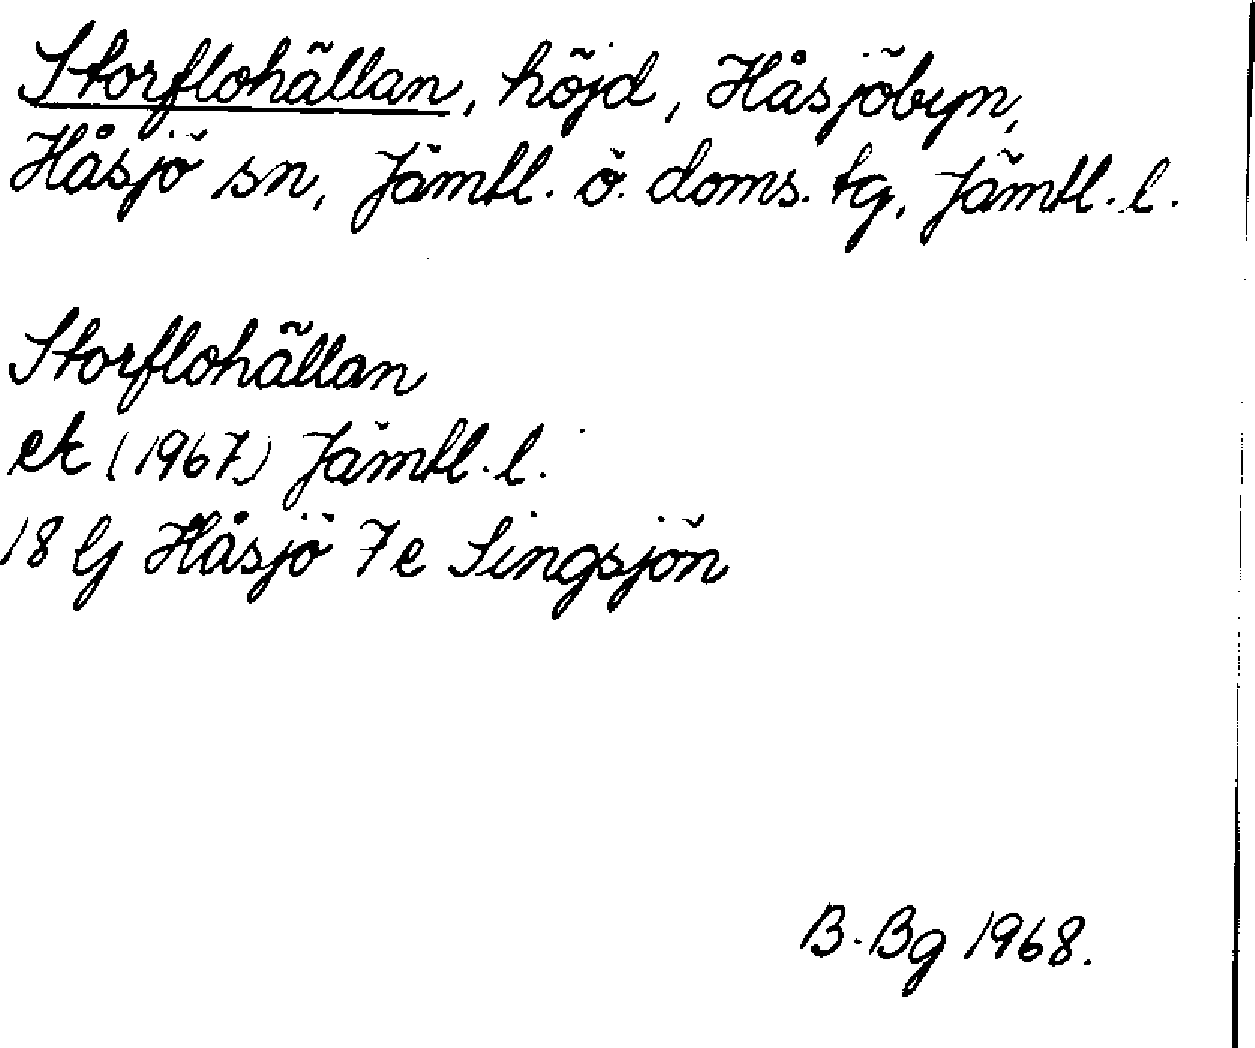 Storflohällan, höjd, Håsjöbyn,
Håsjö sn, Jämtl. ö. doms. tg, Jämtl. l.
Storflohällan
ek (1967) Jämtl. l.
18 G Håsjö 7e Singsjön
B. Bg 1968.